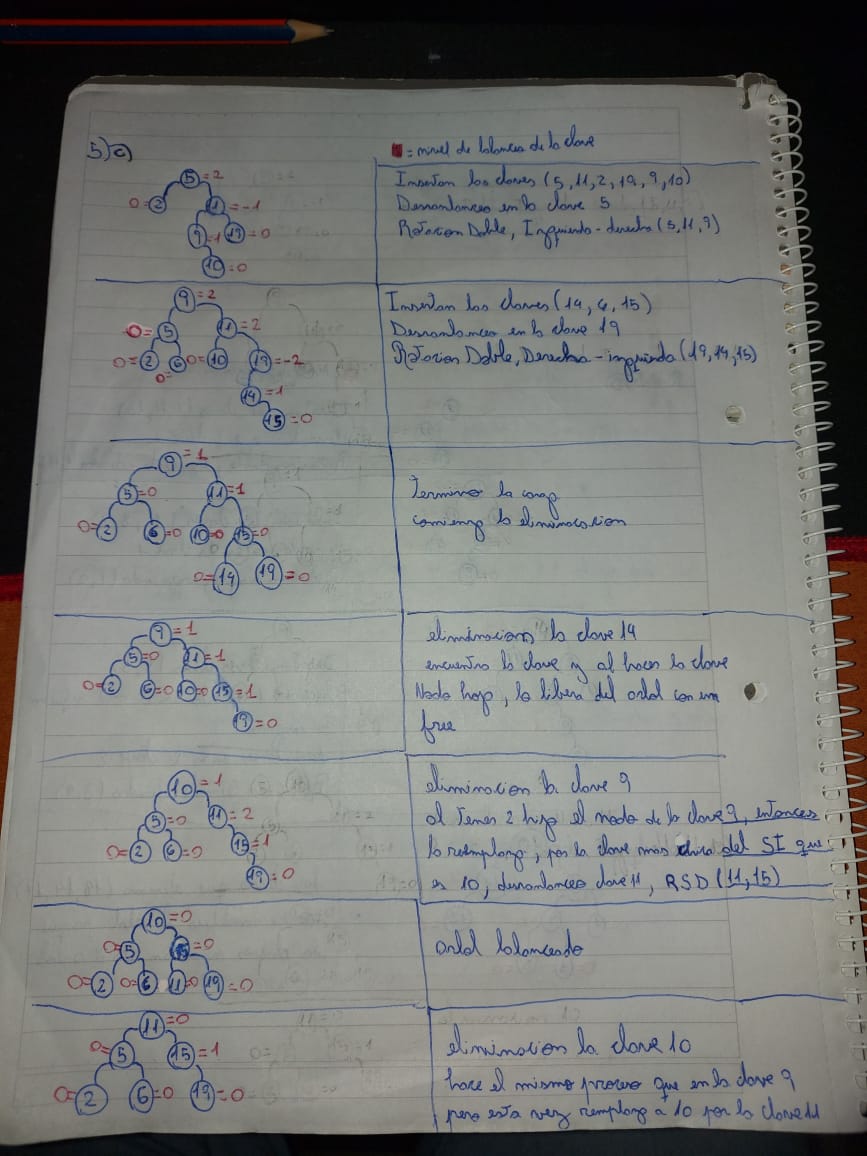 5)c)
= nivel de balanceo de la clave
5=2
0=2 11=-1
9=1 19=0
10=0
Insertan las claves (5,11,2,19,9,10)
Desvalanceo en la clave 5
Rotacion Doble, Izquierda-derecha (5,11,9)
9=2
0=5 11=2
0=2 6 0=10 19=-2
0=
14=1
15=0
Insertan las claves (14, 6, 15)
Desvalanceo en la clave 19
Rotacion Doble, Derecha-izquierda (19,14,15)
9=1
5=0 11=1
0=2 6=0 10=0 15=0
0=14 19=0
Termino la carga
comienza la eliminacion
9=1
5=0 11=1
0=2 6=0 10=0 15=1
19=0
eliminacion la clave 14
encuentra la clave y al hacer la clave
Nodo hoja, la libera del arbol con un
free
10=1
5=0 11=2
0=2 6=0 15=1
19=0
eliminacion la clave 9
al tener 2 hijo el nodo de la clave 9, entonces
lo reemplaza, por la clave mas chica del SD que
es 10, desvalanceo clave 11, RSD (11,15)
10=0
0=5 15=0
0=2 0=6 11=0 19=0
arbol balanceado
11=0
0=5 15=1
0=2 6=0 19=0
eliminacion la clave 10
hace el mismo proceso que en la clave 9
pero esta vez remplaza a 10 por la clave 11